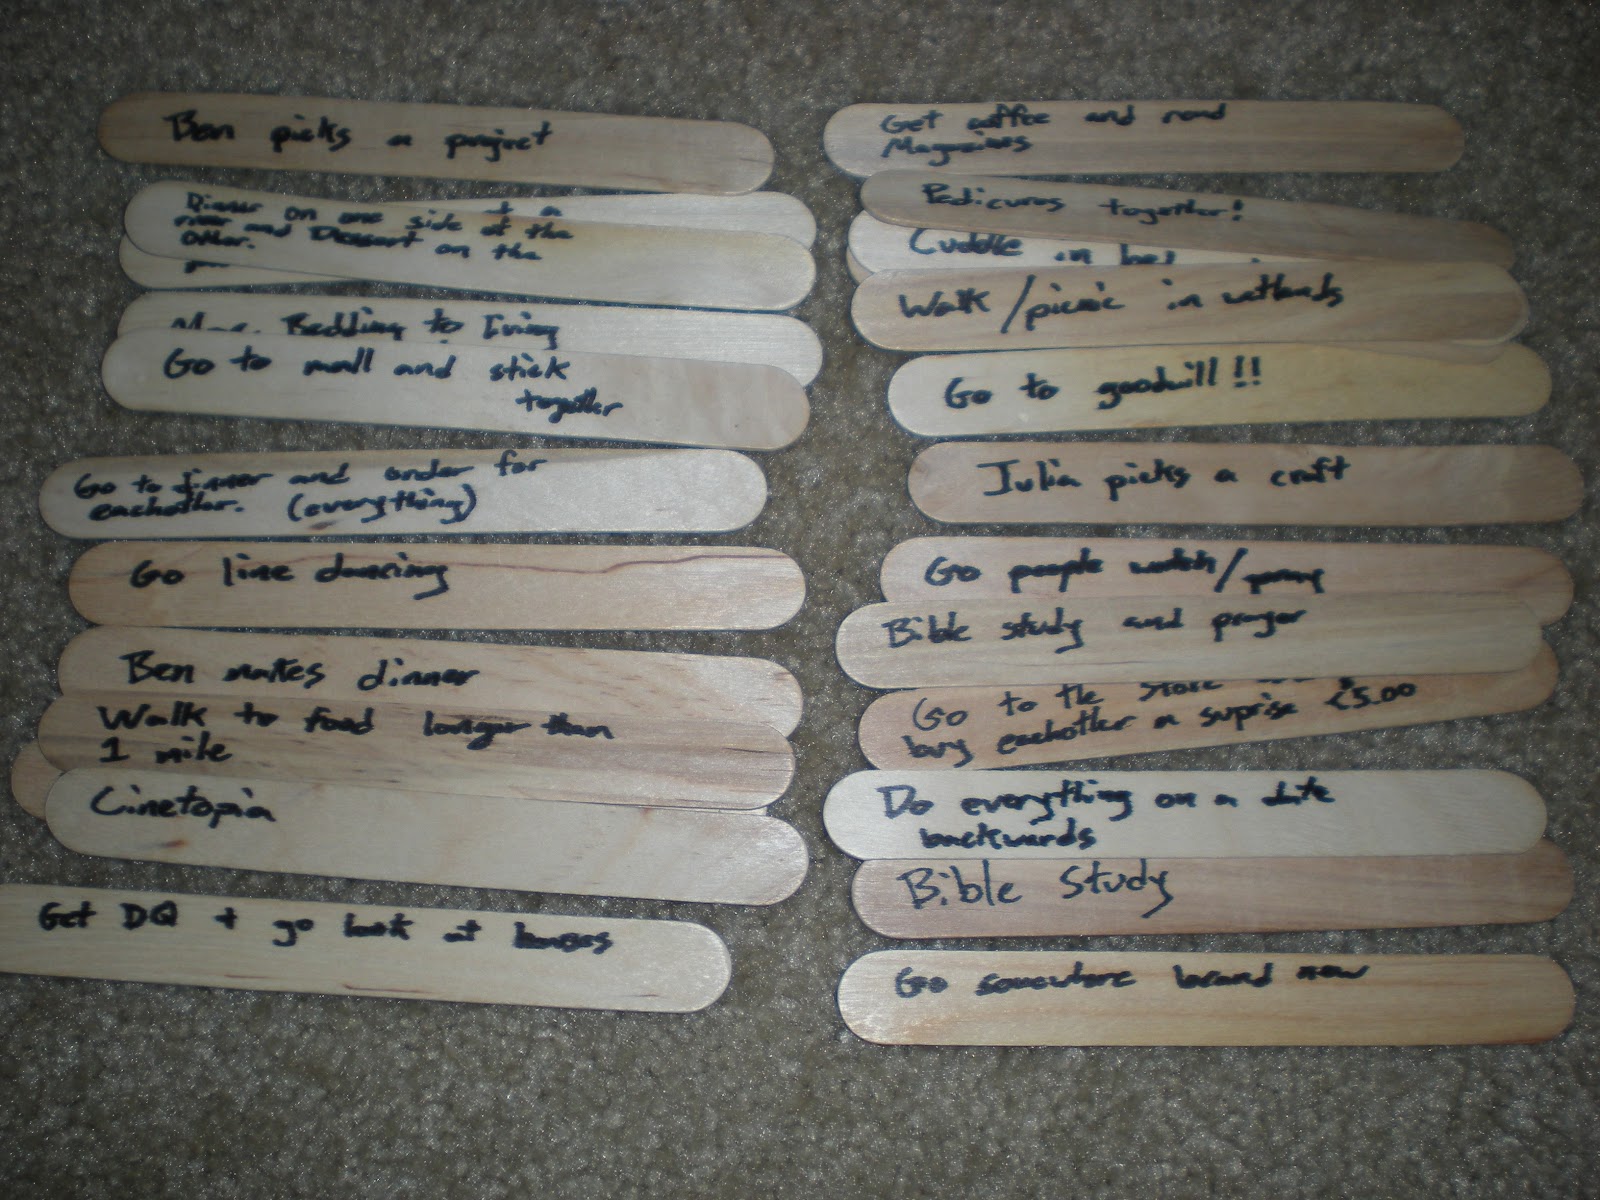 Ben picks a project
Dinner on one side of a
river and Dessert on the
other.
Bedding to living
Go to mall and stick
together
Go to dinner and order for
eachother. (everything)
Go line dancing
Ben makes dinner
Walk to food longer than
1 mile
Cinetopia
Get DQ + go look at houses
Get coffee and read
Magazines
Pedicures together!
Cuddle in bed
Walk/picnic in wetlands
Go to goodwill!!
Julia picks a craft
Go people watch/
Bible study and prayer
Go to the store
buy eachother a suprise <5.00
Do everything on a date
backwards
Bible Study
Go somewhere brand new